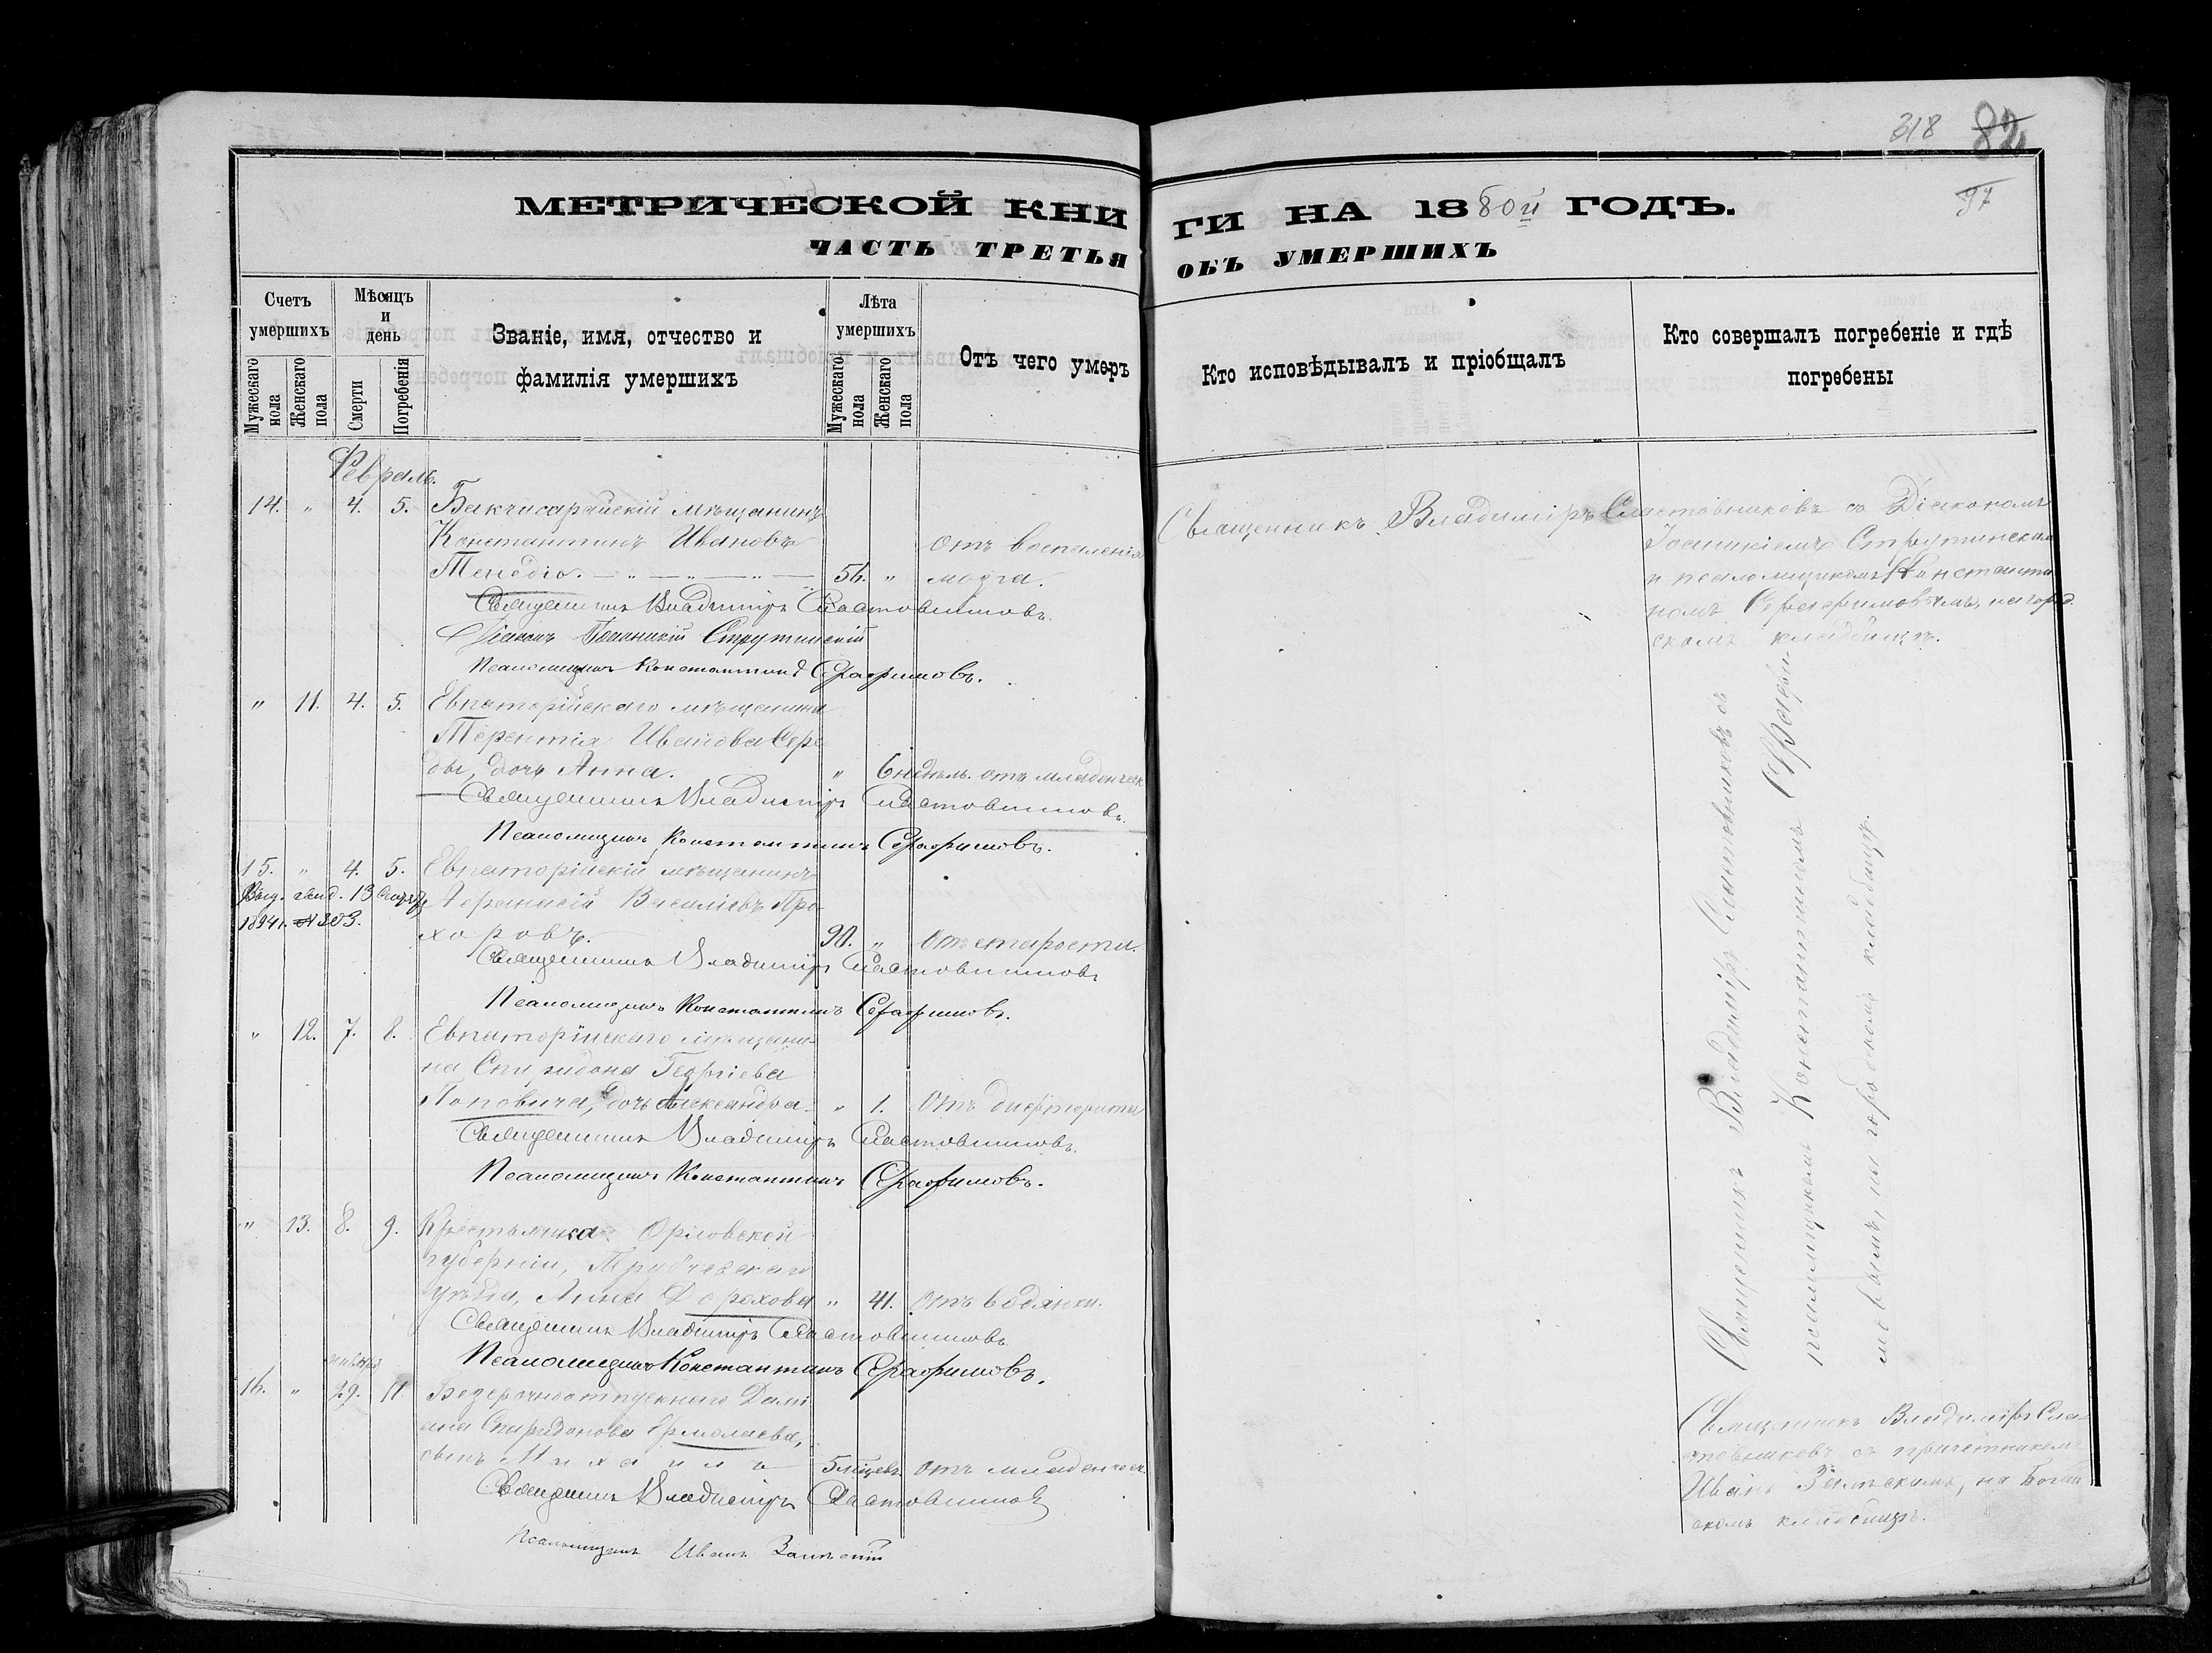 318 82
97
МЕТРИЧЕСКОЙ КНИГИ НА 1880й ГОДЪ.
ЧАСТЬ ТРЕТЬЯ ОБЪ УМЕРШИХЪ
Счетъ умершихъ
Мужескаго пола
Женскаго пола
Мѣсяцъ и день
Смерти
Погребенія
Званіе, имя, отчество и фамилія умершихъ
Лѣта умершихъ
Мужескаго пола
Женскаго пола
Отъ чего умеръ
Кто исповѣдывалъ и пріобщалъ
Кто совершалъ погребеніе и гдѣ погребены
Февраль.
14. " 4. 5. Бакчисарайскій мѣщанинъ
Константинъ Ивановъ отъ воспаленія
Тенедіо. 56. " мозга.
Священникъ Владиміръ Сластовниковъ
Діаконъ Іоанникій Струтинскій
Псаломщикъ Константинъ Серафимовъ.
Священникъ Владиміръ Сластовниковъ съ Діакономъ
Іоанникіемъ Струтинскимъ
и псаломщикомъ Константи
номъ Серафимовымъ, на город
скомъ кладбищѣ.
" 11. 4. 5. Евпаторійскаго мѣщанина
Терентія Иванова Сере
ды, дочь Анна. " 6 недѣль. отъ младенческ
Священникъ Владиміръ Сластовниковъ
Псаломщикъ Константинъ Серафимовъ.
15. " 4. 5. Евпаторійскій мѣщанинъ
Выд. свид. 13
1894 г. № 303.
Афанасій Василіевъ Про
хоровъ. 90. " Отъ старости.
Священникъ Владиміръ Сластовниковъ
Псаломщикъ Константинъ Серафимовъ.
" 12. 7. 8. Евпаторійскаго мѣщани
на Спиридона Георгіева
Поповича, дочь Александра " 1. Отъ дифтерита
Священникъ Владиміръ Сластовниковъ
Псаломщикъ Константинъ Серафимовъ.
" 13. 8. 9. Крестьянка Орловской
губерніи, Трубчевскаго
уѣзда, Анна Дорохова " 41. Отъ водянки.
Священникъ Владиміръ Сластовниковъ
Псаломщикъ Константинъ Серафимовъ.
Священникъ Владиміръ Сластовниковъ съ
псаломщикомъ Константиномъ Серафи
мовымъ, на городскомъ кладбищѣ.
января
16. " 29. 11. Безсрочноотпускнаго Дамі
ана Спиридонова Ермолаева,
сынъ Михаилъ 5 мѣсяцевъ отъ младенческ
Священникъ Владиміръ Сластовниковъ
Псаломщикъ Иванъ Залѣскій
Священникъ Владиміръ Сла
стовниковъ съ причетникомъ
Иваномъ Залѣскимъ, на Богай
скомъ кладбищѣ.